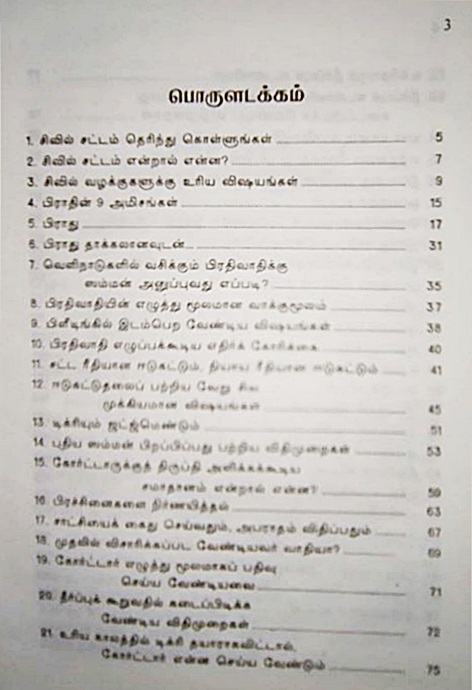 3
பொருளடக்கம்
1. சிவில் சட்டம் தெரிந்து கொள்ளுங்கள் 5
2. சிவில் சட்டம் என்றால் என்ன? 7
3. சிவில் வழக்குகளுக்கு உரிய விஷயங்கள் 9
4. பிராதின் 9 அமிசங்கள் 15
5. பிராது 17
6. பிராது தாக்கலானவுடன் 31
7. வெளிநாடுகளில் வசிக்கும் பிரதிவாதிக்கு
ஸம்மன் அனுப்புவது எப்படி? 35
8. பிரதிவாதியின் எழுத்து மூலமான வாக்குமூலம் 37
9. பிளீடிங்கில் இடம்பெற வேண்டிய விஷயங்கள் 38
10. பிரதிவாதி எழுப்பக்கூடிய எதிர்க் கோரிக்கை 40
11. சட்ட ரீதியான ஈடுகட்டும், நியாய ரீதியான ஈடுகட்டும் 41
12. ஈடுகட்டுதலைப் பற்றிய வேறு சில
முக்கியமான விஷயங்கள் 45
13. டிக்ரியும் ஜட்ஜ்மெண்டும் 51
14. புதிய ஸம்மன் பிறப்பிப்பது பற்றிய விதிமுறைகள் 53
15. கோர்ட்டாருக்குத் திருப்தி அளிக்கக்கூடிய
சமாதானம் என்றால் என்ன? 59
16. பிரச்சினைகளை நிர்ணயித்தல் 63
17. சாட்சியைக் கைது செய்வதும், அபராதம் விதிப்பதும் 67
18. முதலில் விசாரிக்கப்பட வேண்டியவர் வாதியா? 69
19. கோர்ட்டார் எழுத்து மூலமாகப் பதிவு
செய்ய வேண்டியவை 71
20. தீர்ப்புக் கூறுவதில் கடைப்பிடிக்க
வேண்டிய விதிமுறைகள் 72
21. உரிய காலத்தில் டிக்ரி தயாராகவிட்டால்,
கோர்ட்டார் என்ன செய்ய வேண்டும் 75